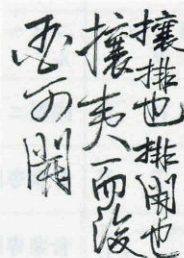 攘排也排開也
攘夷而後
函可開